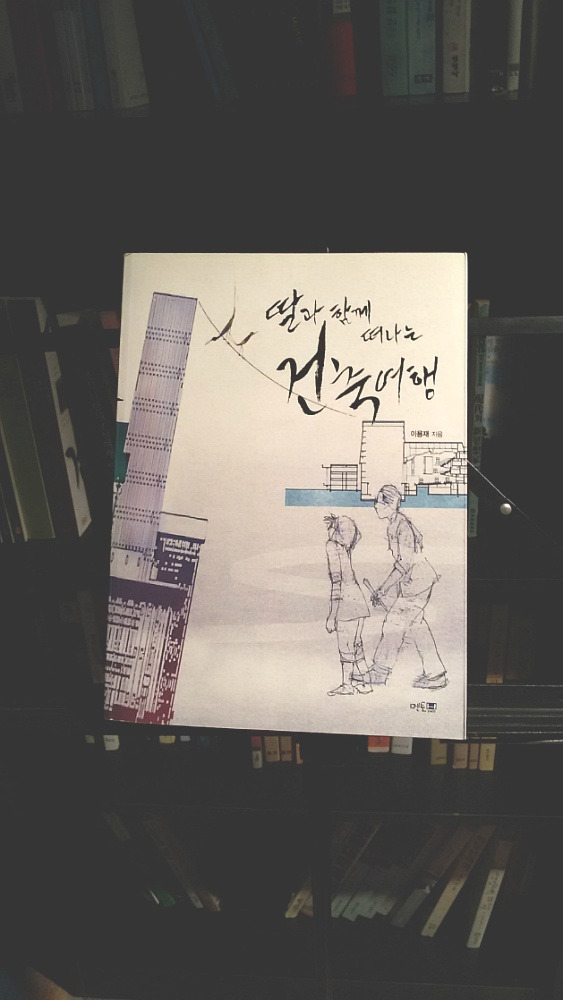 딸과 함께
떠나는
건축여행
이용재 지음
멘토